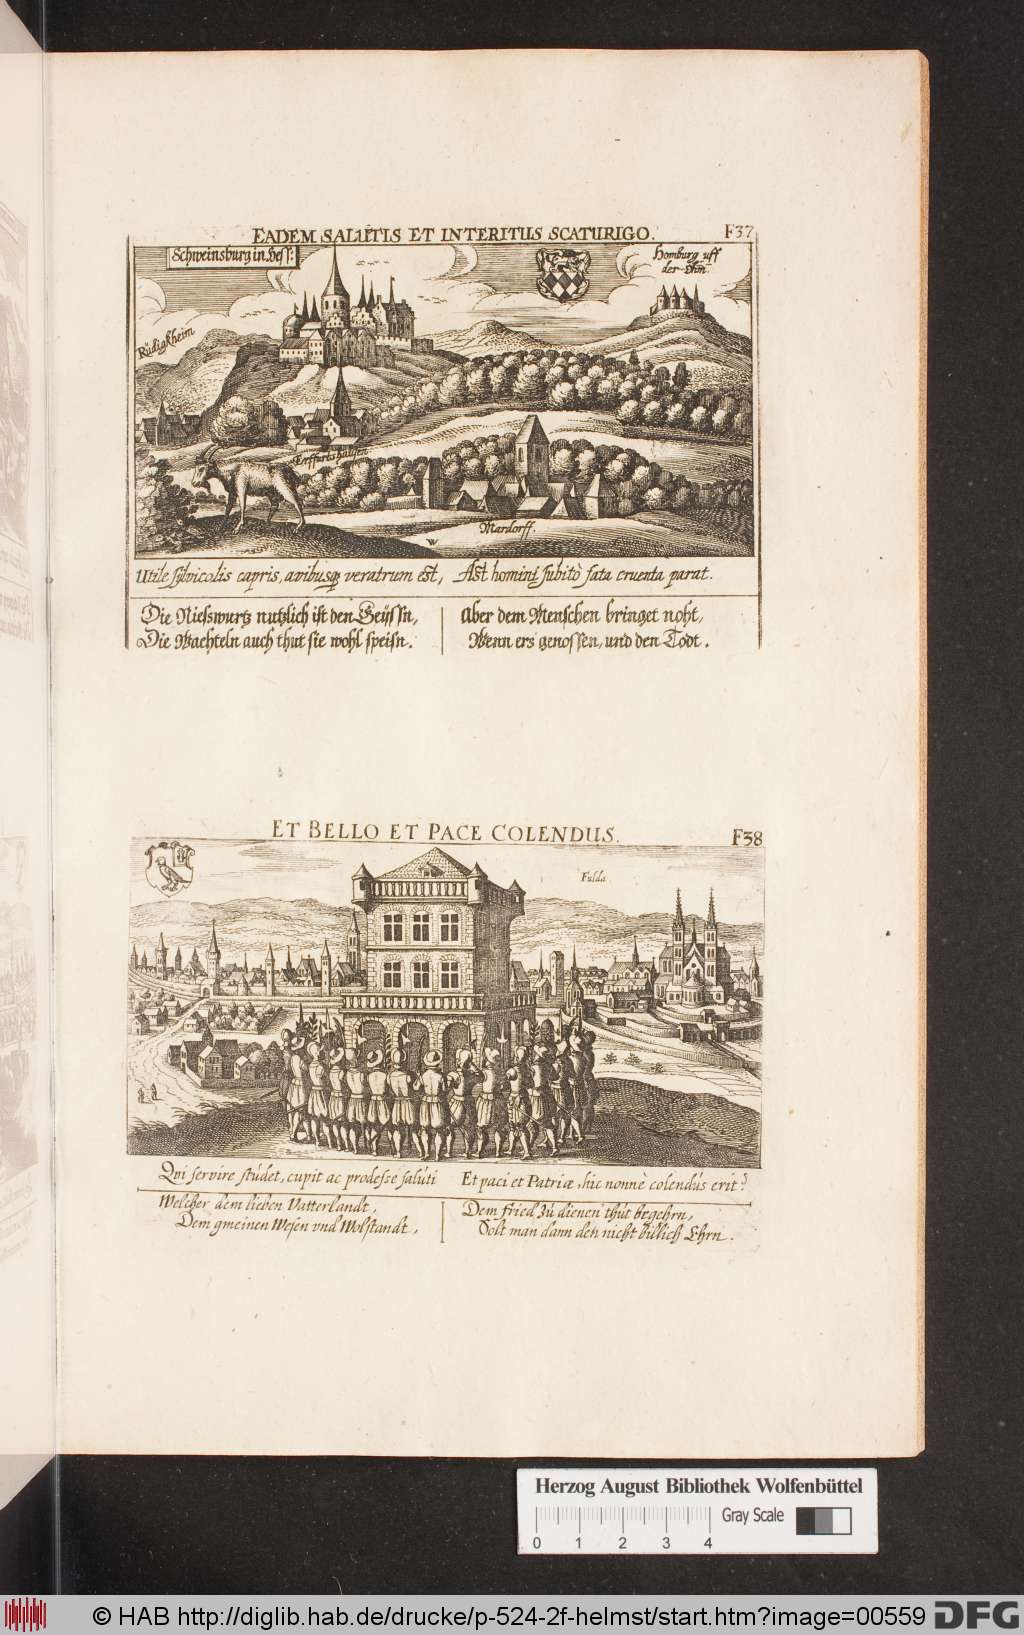 EADEM SALUTIS ET INTERITUS SCATURIGO.
F37
Schweinsburg in Hess:
Homburg uff
der Ohm.
Rüdigkheim
Erffurtshausen
Mardorff.
W
Utile sylvicolis capris, avibusq veratrum est, Ast homini subitò fata cruenta parat.
Die Niesswurtz nutzlich ist den Geyssn,
Die Wachteln auch thut sie wohl speisn.
Aber dem Menschen bringet noht,
Wenn ers genossen, und den Todt.
ET BELLO ET PACE COLENDUS.
F38
Fulda
Qui servire studet, cupit ac prodesse saluti Et paci et Patriæ, hic nonnè colendus erit?
Welcher dem lieben Vatterlandt,
Dem gmeinen Wesen vnd Wolstandt,
Dem fried zu dienen thut begehrn,
Solt man dann den nicht billich Ehrn.
Herzog August Bibliothek Wolfenbüttel
Gray Scale
0 1 2 3 4
© HAB http://diglib.hab.de/drucke/p-524-2f-helmst/start.htm?image=00559
DFG